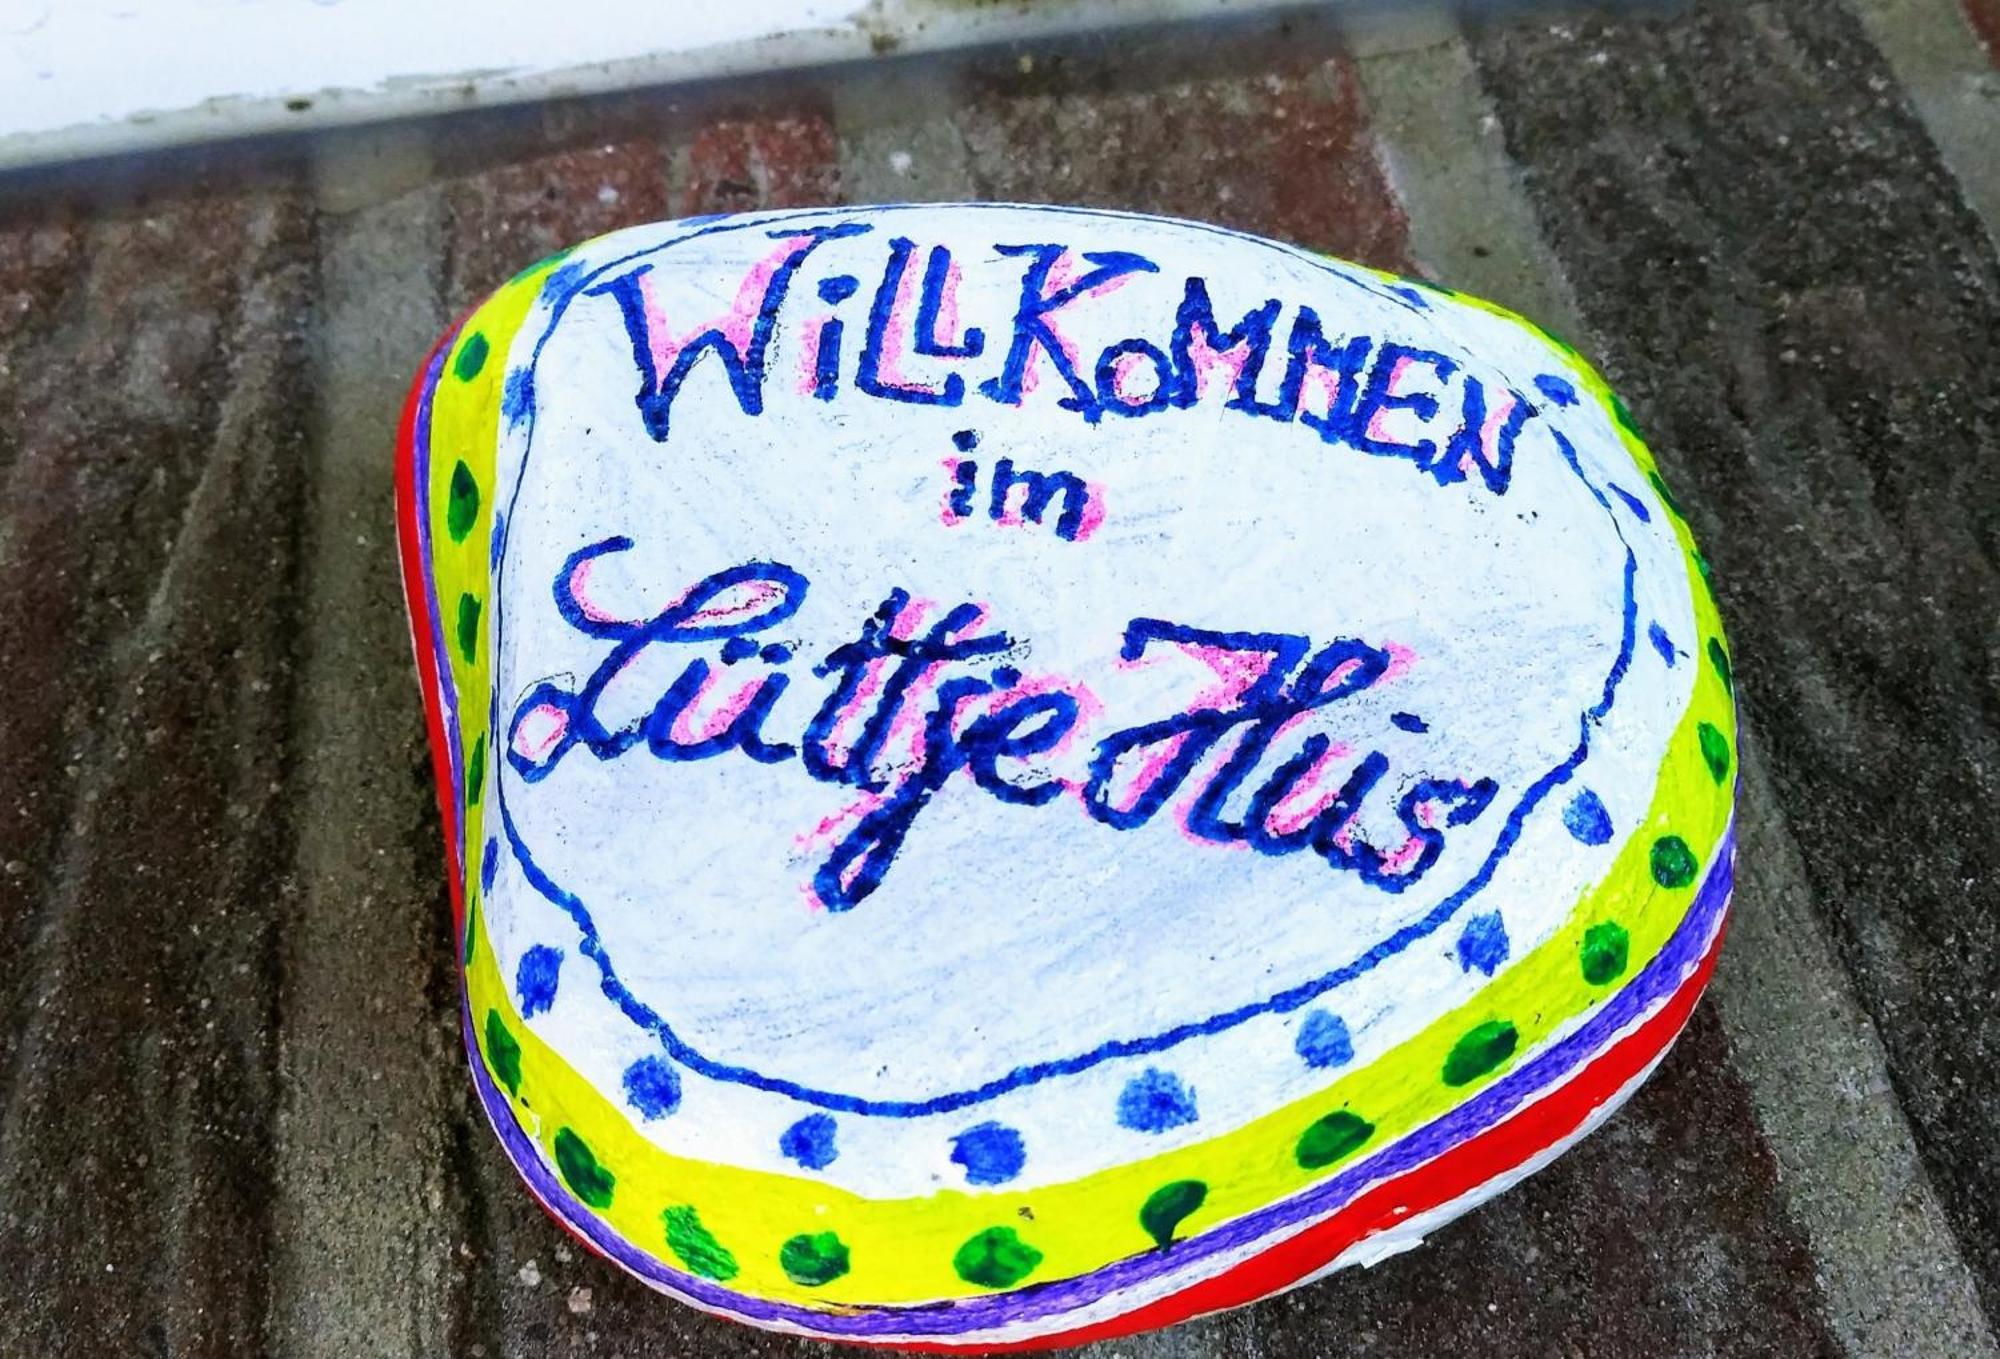 WillKOMMEN
im
Lüttje Hüs